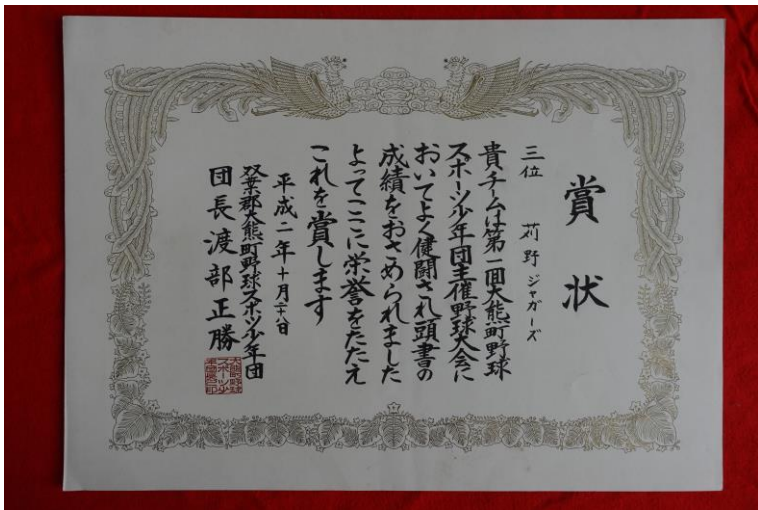 賞状
三位 苅野ジャガーズ
貴チームは第一回大熊町野球
スポーツ少年団主催野球大会に
おいてよく健闘され頭書の
成績をおさめられました
よってここに栄誉をたたえ
これを賞します
平成二年十月二十八日
双葉郡大熊町野球スポーツ少年団
団長渡部正勝